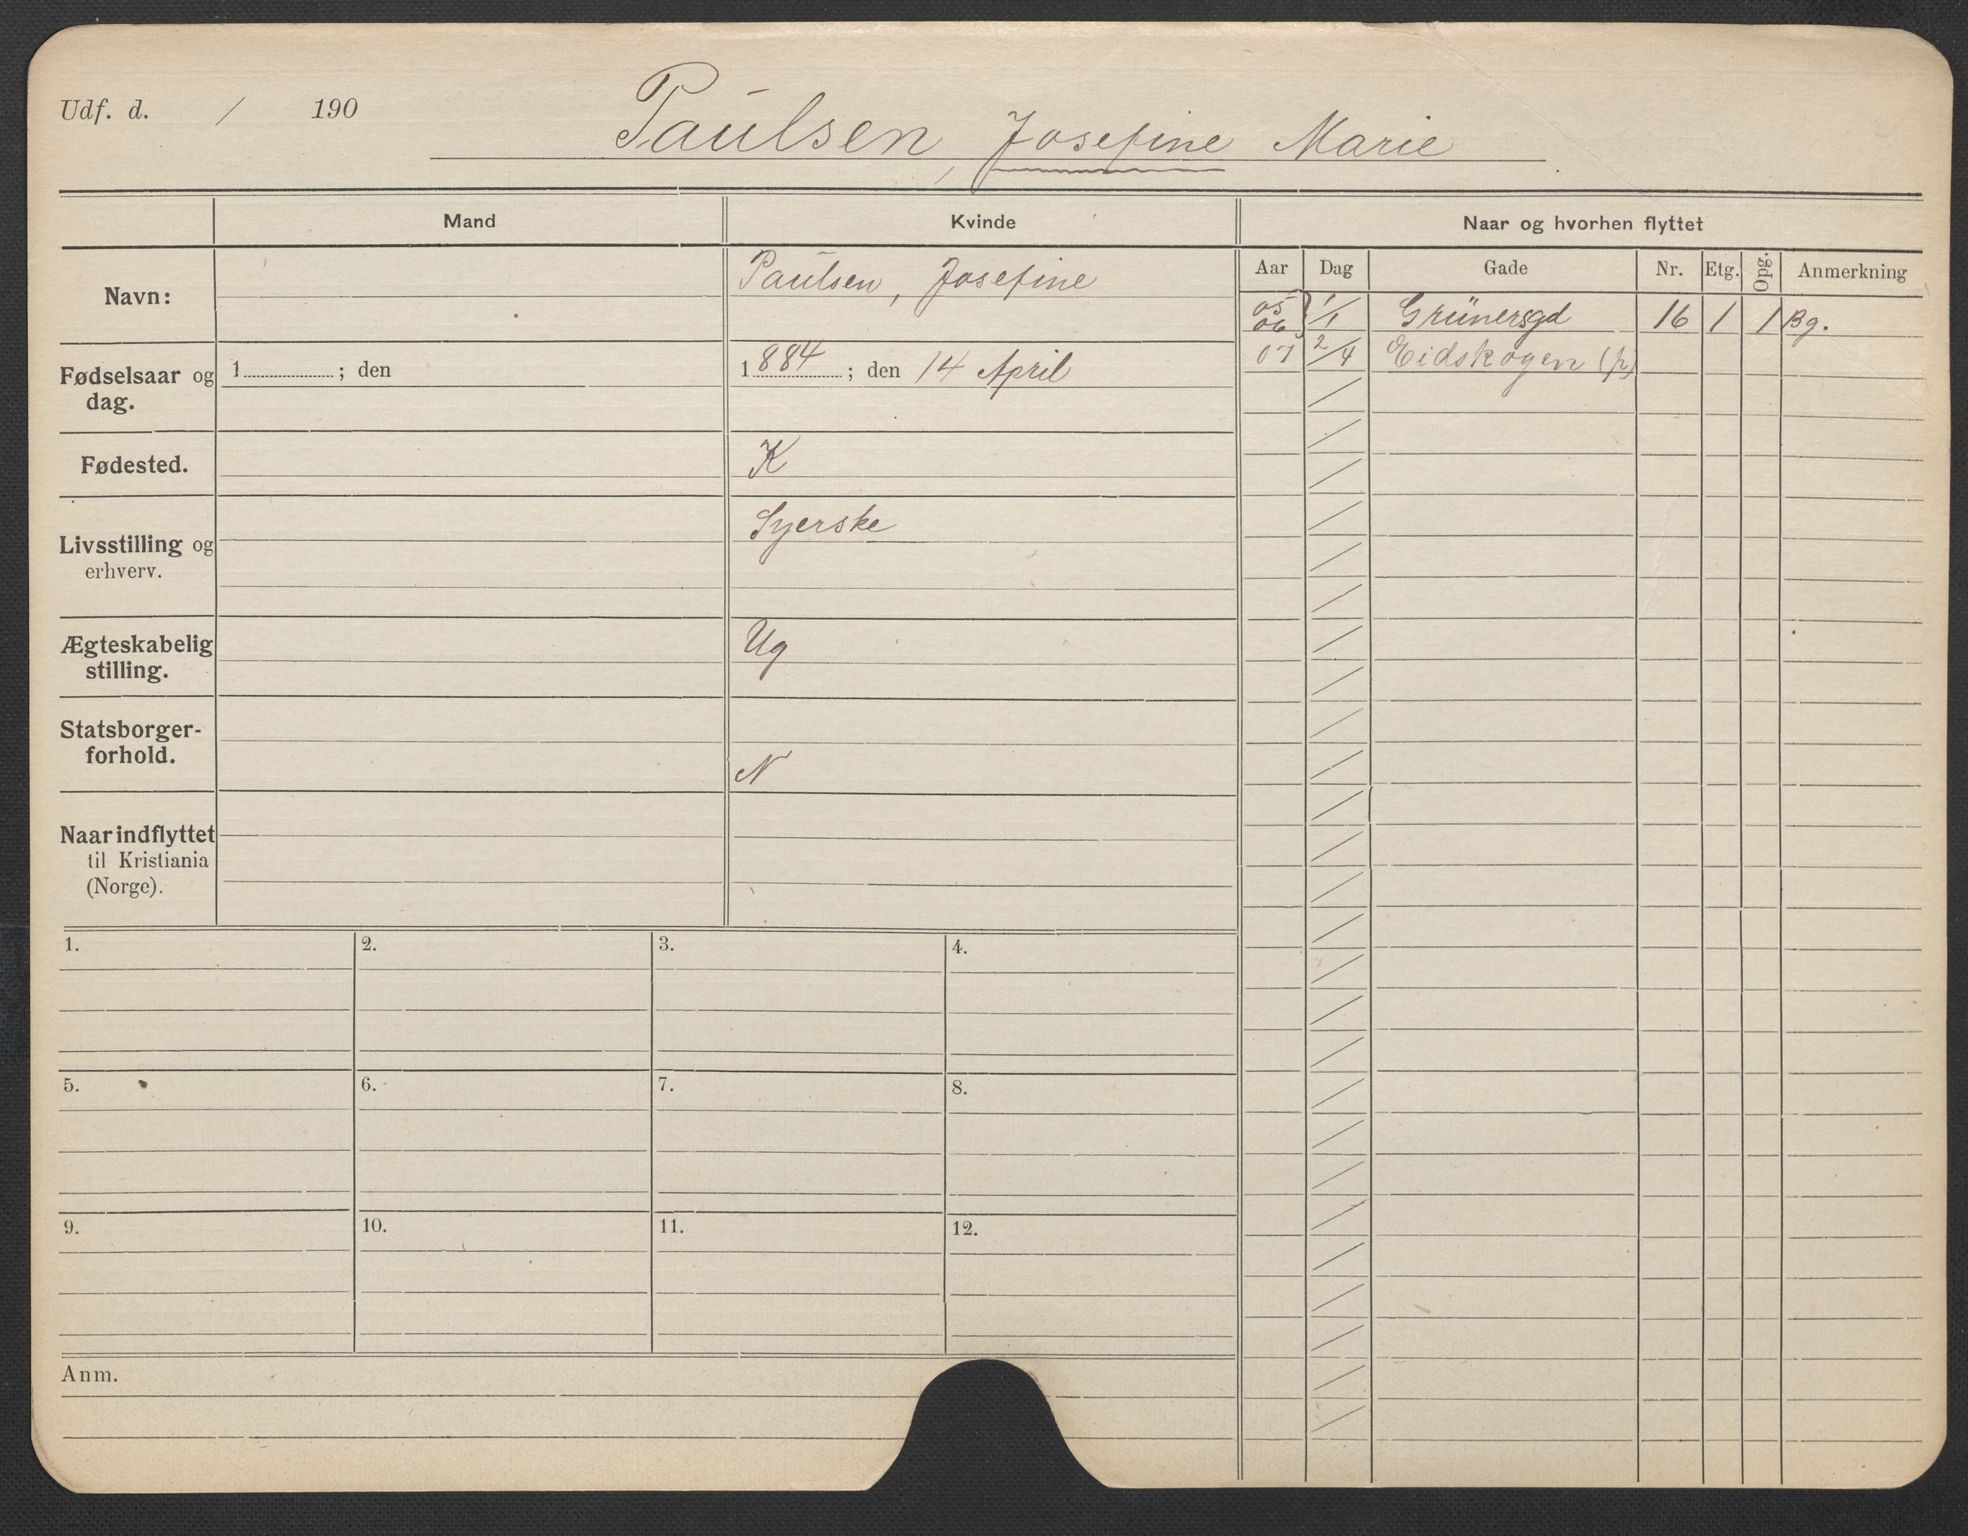 Udf. d. / 190
Paulsen, Josefine Marie
Mand
Kvinde
Naar og hvorhen flyttet
Aar Dag Gade Nr. Etg. Opg. Anmerkning
05 06 } 1/1 Grünersgd 16 1 1 Bg.
07 2/4 Eidskogen (p)
Navn:
Paulsen, Josefine
Fødselsaar og dag.
1 ; den
1884; den 14 April
Fødested.
K
Livsstilling og
erhverv.
Syerske
Ægteskabelig
stilling.
Ug
Statsborger-
forhold.
N
Naar indflyttet
til Kristiania
(Norge).
1. 2. 3. 4.
5. 6. 7. 8.
9. 10. 11. 12.
Anm.